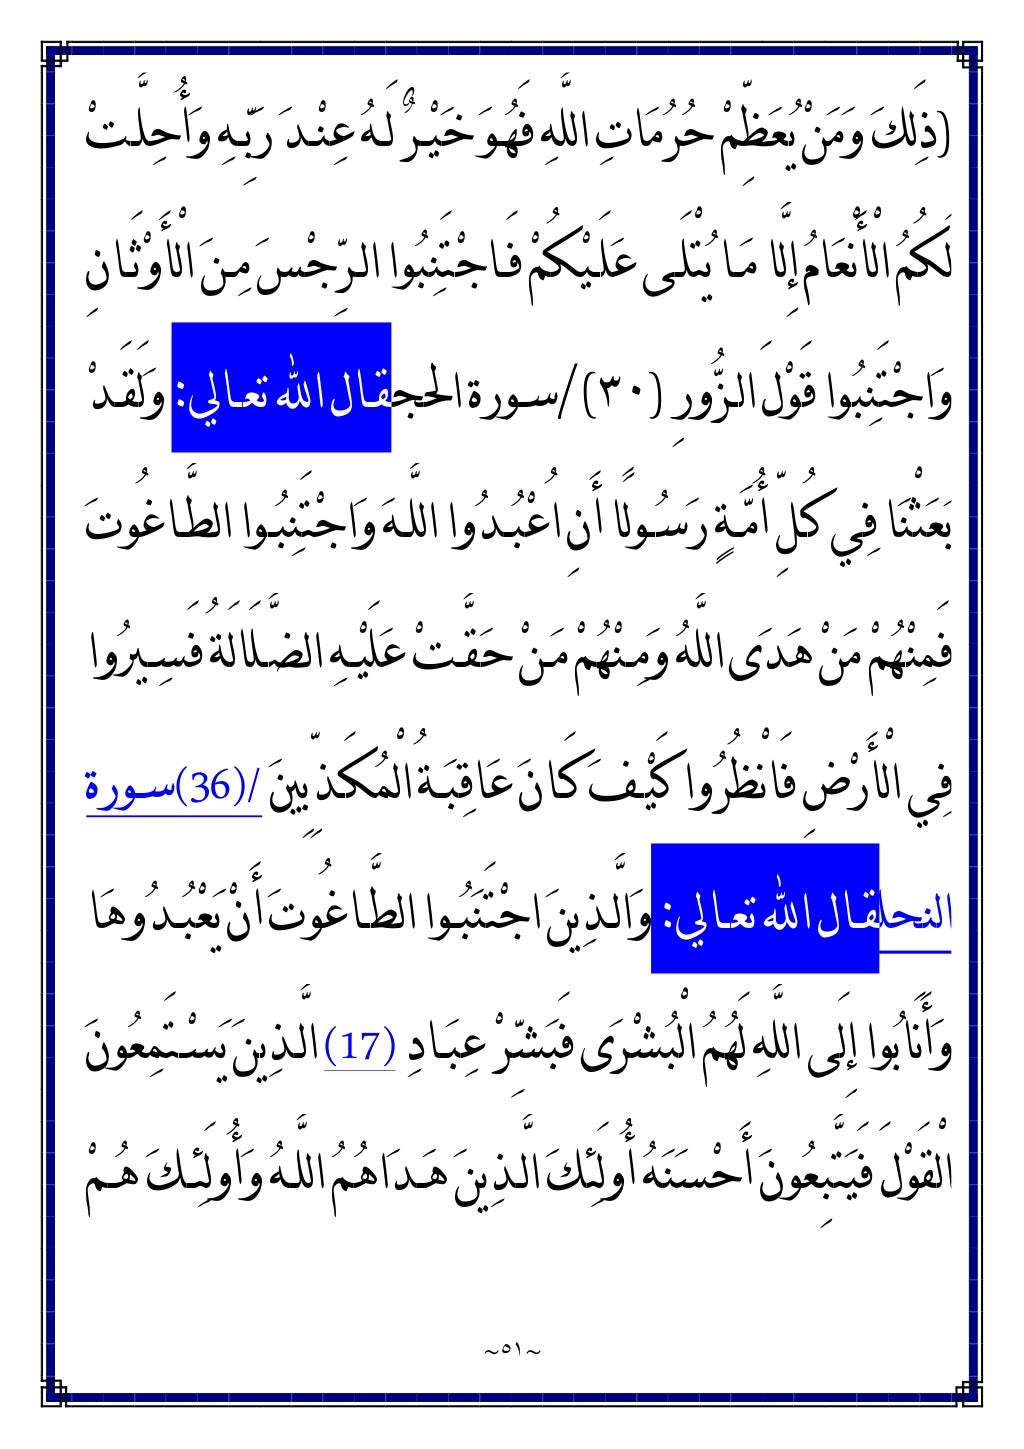 (ذَٰلِكَ وَمَنْ يُعَظِّمْ حُرُمَاتِ اللَّهِ فَهُوَ خَيْرٌ لَهُ عِنْدَ رَبِّهِ وَأُحِلَّتْ
لَكُمُ الْأَنْعَامُ إِلَّا مَا يُتْلَى عَلَيْكُمْ فَاجْتَنِبُوا الرِّجْسَ مِنَ الْأَوْثَانِ
وَاجْتَنِبُوا قَوْلَ الزُّورِ (٣٠)/سورة الحجقال الله تعالي: وَلَقَدْ
بَعَثْنَا فِي كُلِّ أُمَّةٍ رَسُولًا أَنِ اُعْبُدُوا اللَّهَ وَاجْتَنِبُوا الطَّاغُوتَ
فَمِنْهُمْ مَنْ هَدَى اللَّهُ وَمِنْهُمْ مَنْ حَقَّتْ عَلَيْهِ الضَّلَالَةُ فَسِيرُوا
فِي الْأَرْضِ فَانْظُرُوا كَيْفَ كَانَ عَاقِبَةُ الْمُكَذِّبِينَ /(36)سورة
النحلقال الله تعالي: وَالَّذِينَ اجْتَنَبُوا الطَّاغُوتَ أَنْ يَعْبُدُوهَا
وَأَنَابُوا إِلَى اللَّهِ لَهُمُ الْبُشْرَى فَبَشِّرْ عِبَادِ (17) الَّذِينَ يَسْتَمِعُونَ
الْقَوْلَ فَيَتَّبِعُونَ أَحْسَنَهُ أُولَئِكَ الَّذِينَ هَدَاهُمُ اللَّهُ وَأُولَئِكَ هُمْ
~٥١~